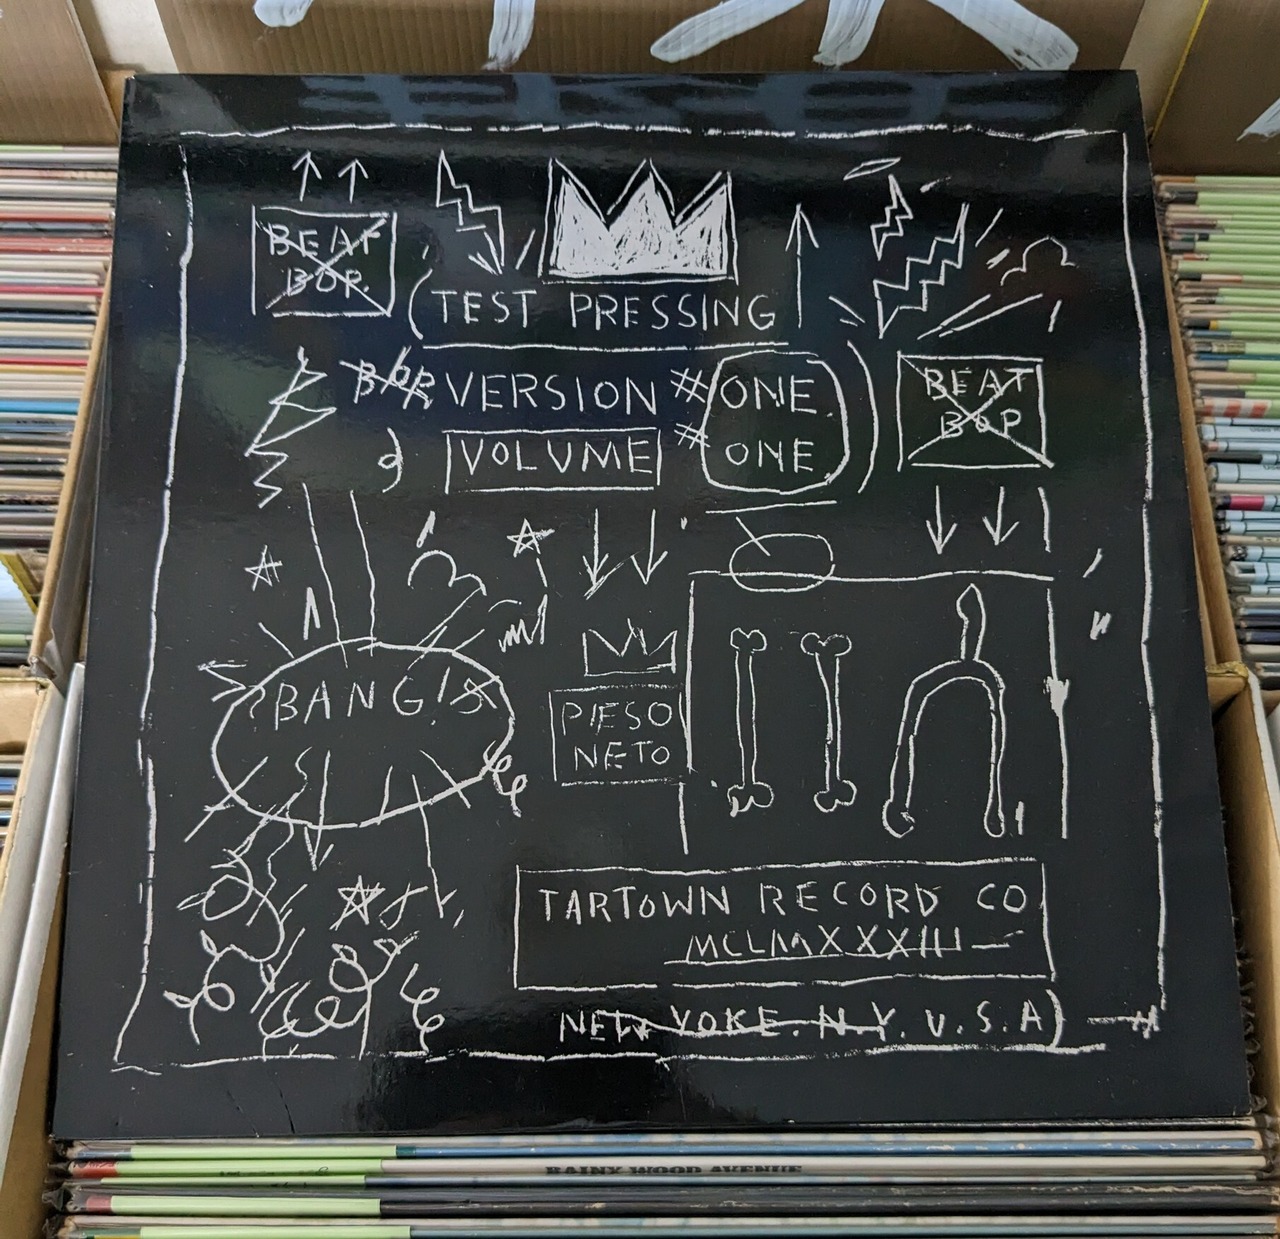 BEAT
BOP.
(TEST PRESSING
BOP VERSION # ONE
VOLUME # ONE
BEAT
BOP
BANG!
PIESO
NETO
TARTOWN RECORD CO
MCLMXXXIII
NEW YOKE. N.Y. U.S.A)
RAINY WOOD AVENUE